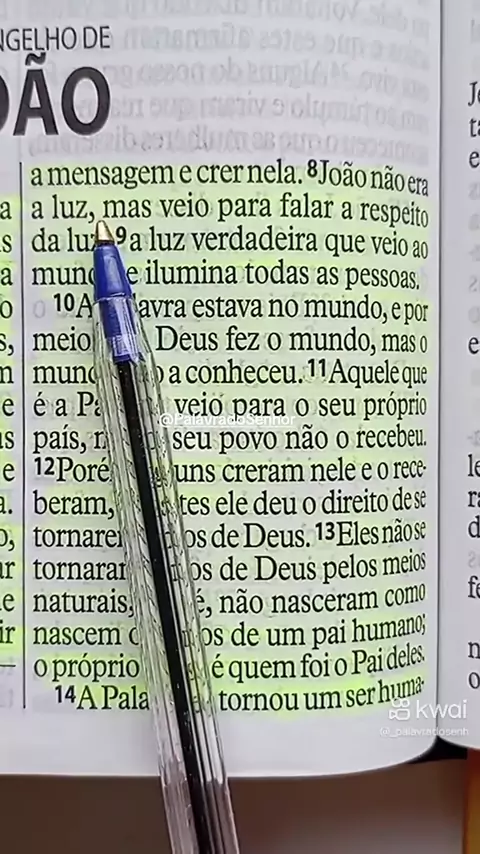 NGELHO DE
OÃO
a mensagem e crer nela. 8João não era
a luz, mas veio para falar a respeito
da luz 9a luz verdadeira que veio ao
mun e ilumina todas as pessoas.
10A avra estava no mundo, e por
meio Deus fez o mundo, mas o
mun o a conheceu. 11Aquele que
é a Pa veio para o seu próprio
país, n seu povo não o recebeu.
12Poré uns creram nele e o rece-
beram, tes ele deu o direito de se
tornare os de Deus. 13Eles não se
tornara os de Deus pelos meios
naturais, é, não nasceram como
nascem os de um pai humano;
o próprio é quem foi o Pai deles.
14A Pala tornou um ser huma-
@PalavradoSenhor
kwai
@_palavradosenh